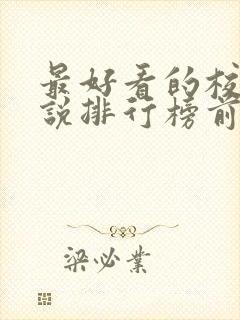 最好看的校
说排行榜前
梁必業